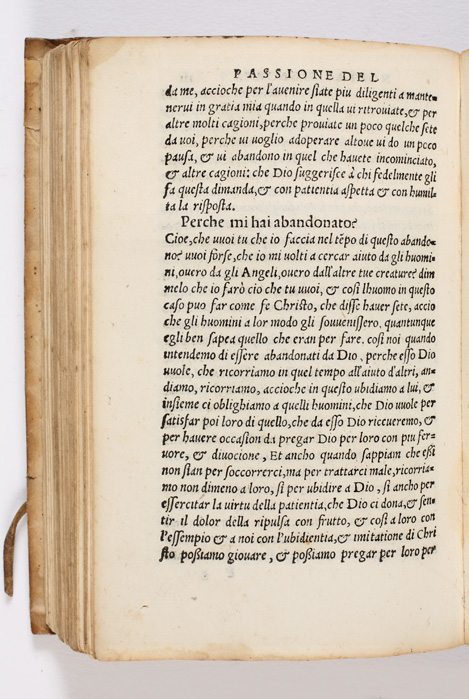 PASSIONE DEL
da me, accioche per l'auenire ſiate piu diligenti a mante-
nerui in gratia mia quando in quella ui ritrouiate, & per
altre molti cagioni, perche prouiate un poco quelche ſete
da uoi, perche ui uoglio adoperare altoue ui do un poco
pauſa, & ui abandono in quel che hauete incominciato,
& altre cagioni: che Dio ſuggeriſce à chi fedelmente gli
fa queſta dimanda, & con patientia aſpetta & con humil-
ta la riſpoſta.
Perche mi hai abandonato?
Cioe, che uuoi tu che io faccia nel tēpo di queſto abando-
no? uuoi forſe, che io mi uolti a cercar aiuto da gli huomi-
ni, ouero da gli Angeli, ouero dall'altre tue creature? dim
melo che io farò cio che tu uuoi, & coſi lhuomo in queſto
caſo puo far come fe Chriſto, che diſſe hauer ſete, accio
che gli huomini a lor modo gli ſouueniſſero, quantunque
egli ben ſapea quello che eran per fare. coſi noi quando
intendemo di eſſere abandonati da Dio, perche eſſo Dio
uuole, che ricorriamo in quel tempo all'aiuto d'altri, an-
diamo, ricorriamo, accioche in queſto ubidiamo a lui, &
inſieme ci oblighiamo a quelli huomini, che Dio uuole per
ſatisfar poi loro di quello, che da eſſo Dio riceueremo, &
per hauere occaſion da pregar Dio per loro con piu fer-
uore, & diuocione, Et ancho quando ſappiam che eßi
non ſian per ſoccorrerci, ma per trattarci male, ricorria-
mo non dimeno a loro, ſi per ubidire a Dio, ſi ancho per
eſſercitar la uirtu della patientia, che Dio ci dona, & ſen-
tir il dolor della ripulſa con frutto, & coſi a loro con
l'eſſempio & a noi con l'ubidientia, & imitatione di Chri
ſto poßiamo giouare, & poßiamo pregar per loro per